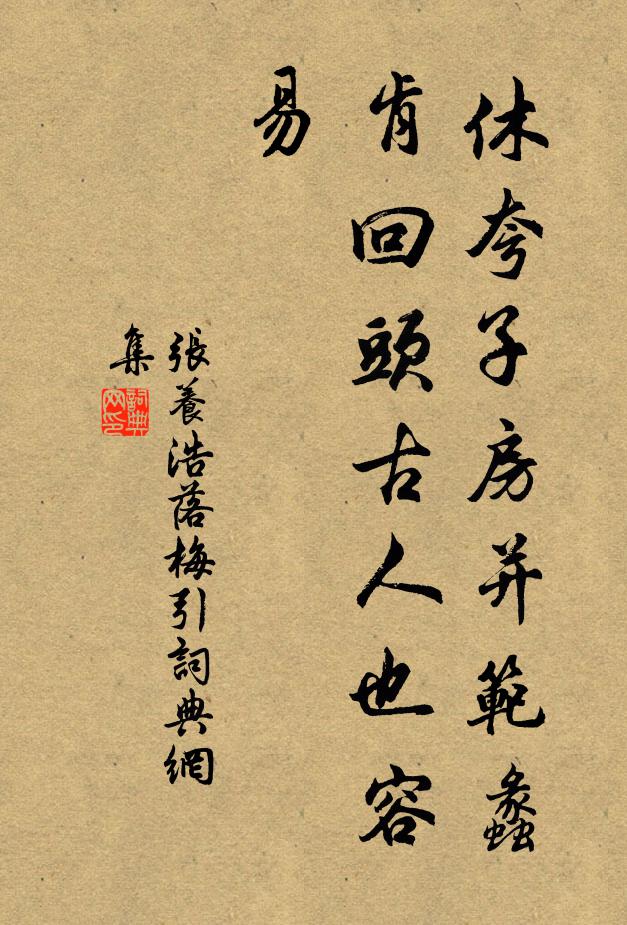 休夸子房并範蠡
肯回頭古人也容
易
張養浩落梅引詞典網
集
詞典
网印